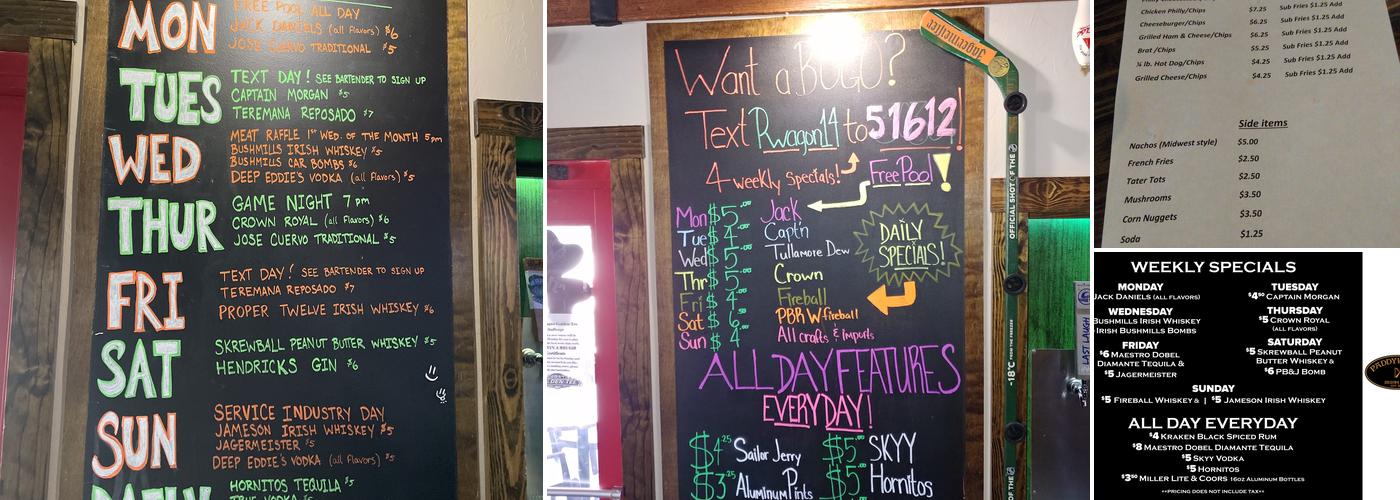 MON
FREE POOL ALL DAY
JACK DANIELS (all Flavors) $6
JOSE CUERVO TRADITIONAL $5
TUES
TEXT DAY! SEE BARTENDER TO SIGN UP
CAPTAIN MORGAN $5
TEREMANA REPOSADO $7
WED
MEAT RAFFLE 1ST WED. OF THE MONTH 5pm
BUSHMILLS IRISH WHISKEY $5
BUSHMILLS CAR BOMBS $6
DEEP EDDIE'S VODKA (all Flavors) $5
THUR
GAME NIGHT 7pm
CROWN ROYAL (all Flavors) $6
JOSE CUERVO TRADITIONAL $5
FRI
TEXT DAY! SEE BARTENDER TO SIGN UP
TEREMANA REPOSADO $7
PROPER TWELVE IRISH WHISKEY $6
SAT
SKREWBALL PEANUT BUTTER WHISKEY $5
HENDRICKS GIN $6
SUN
SERVICE INDUSTRY DAY
JAMESON IRISH WHISKEY $5
JAGERMEISTER $5
DEEP EDDIE'S VODKA (all Flavors) $5
DAILY
HORNITOS TEQUILA $5
Want a BOGO?
Text Rwagon14 to 51612!
4 weekly Specials! Free Pool!
Mon $5.00 Jack
Tue $4.00 Capt'n
Wed $5.00 Tullamore Dew
Thr $5.00 Crown
Fri $4.00 Fireball
Sat $6.00 PBR W/fireball
Sun $4 All crafts & Imports
DAILY
SPECIALS!
ALL DAY FEATURES
EVERYDAY!
$4.25 Sailor Jerry $5.00 SKYY
$3.25 Aluminum Pints $5.00 Hornitos
Jägermeister
OFFICIAL SHOT OF THE
-18°C
LAST LAUGH
Chicken Philly/Chips $7.25 Sub Fries $1.25 Add
Cheeseburger/Chips $6.25 Sub Fries $1.25 Add
Grilled Ham & Cheese/Chips $6.25 Sub Fries $1.25 Add
Brat /Chips $5.25 Sub Fries $1.25 Add
¼ lb. Hot Dog/Chips $4.25 Sub Fries $1.25 Add
Grilled Cheese/Chips $4.25 Sub Fries $1.25 Add
Side items
Nachos (Midwest style) $5.00
French Fries $2.50
Tater Tots $2.50
Mushrooms $3.50
Corn Nuggets $3.50
Soda $1.25
WEEKLY SPECIALS
MONDAY
JACK DANIELS (ALL FLAVORS)
TUESDAY
$4.50 CAPTAIN MORGAN
WEDNESDAY
BUSHMILLS IRISH WHISKEY
IRISH BUSHMILLS BOMBS
THURSDAY
$5 CROWN ROYAL
(ALL FLAVORS)
FRIDAY
$6 MAESTRO DOBEL
DIAMANTE TEQUILA &
$5 JAGERMEISTER
SATURDAY
$5 SKREWBALL PEANUT
BUTTER WHISKEY &
$6 PB&J BOMB
SUNDAY
$5 FIREBALL WHISKEY & | $5 JAMESON IRISH WHISKEY
ALL DAY EVERYDAY
$4 KRAKEN BLACK SPICED RUM
$8 MAESTRO DOBEL DIAMANTE TEQUILA
$5 SKYY VODKA
$5 HORNITOS
$3.50 MILLER LITE & COORS 16OZ ALUMINUM BOTTLES
**PRICING DOES NOT INCLUDE TAX**